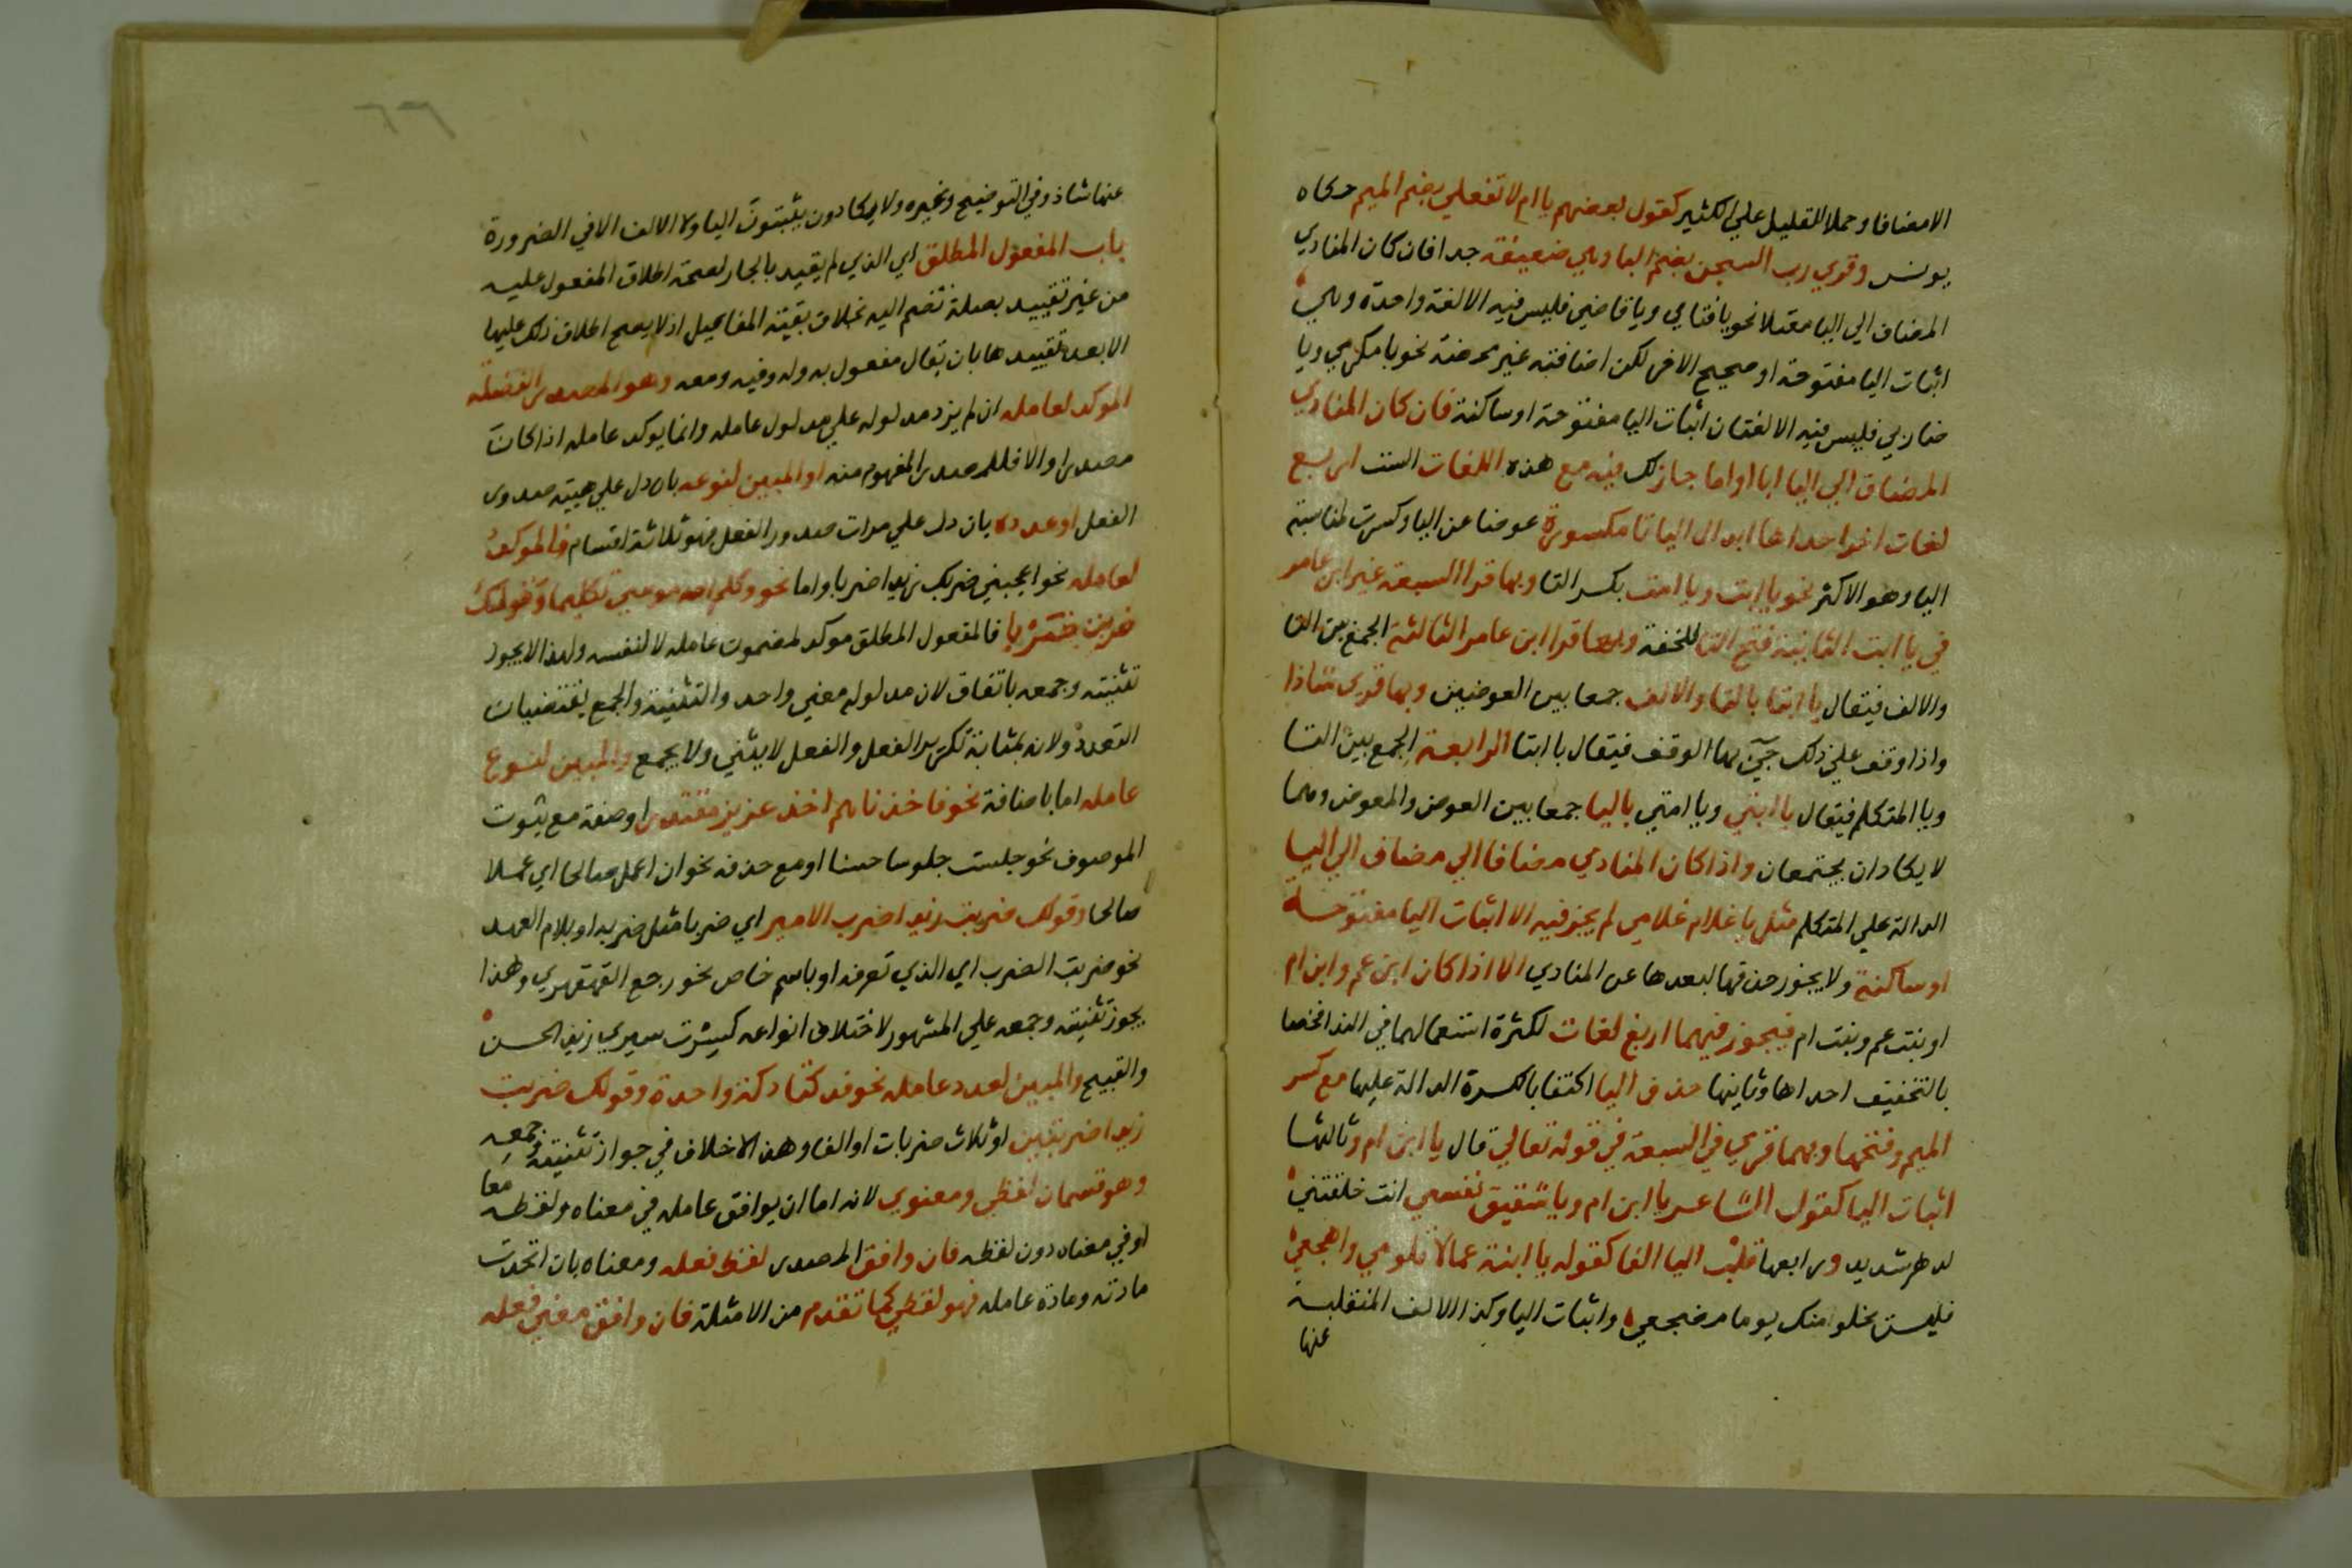 الا مضافا وحملا للقليل علي الكثير كقول بعضهم يا ام لا تفعلي بضم الميم حكاه
يونس وقري رب السجن بضم البا وهي ضعيفة جدا فان كان المنادي
المضاف الي اليا معتلا نحو يا فتاي ويا قاضي فليس فيه الا لغة واحدة وهي
اثبات اليا مفتوحة او صحيح الاخر لكن اضافته غير محضة نحو يا مكرمي ويا
ضاربي فليس فيه الا لغتان اثبات اليا مفتوحة او ساكنة فان كان المنادي
المضاف الي اليا ابا او اما جاز لك فيه مع هذه اللغات الست اربع
لغات اخر احداها ابدال اليا تا مكسورة عوضا عن اليا وكسرت لمناسبة
اليا وهو الاكثر نحو يا ابت ويا امت بكسر التا وبها قرا السبعة غير ابن عامر
في يا ابت الثانية فتح التا للخفة وبها قرا ابن عامر الثالثة الجمع بين التا
والالف فيقال يا ابتا بالتا والالف جمعا بين العوضين وبها قري شاذا
واذا وقف علي ذلك جي بها الوقف فيقال يا ابتا الرابعة الجمع بين التا
ويا المتكلم فيقال يا ابتي ويا امتي باليا جمعا بين العوض والمعوض وهما
لا يكادان يجتمعان واذا كان المنادي مضافا الي مضاف الي اليا
الدالة علي المتكلم مثل يا غلام غلامي لم يجز فيه الا اثبات اليا مفتوحة
او ساكنة ولا يجوز حذفها لبعدها عن المنادي الا اذا كان ابن عم وابن ام
او بنت عم وبنت ام فيجوز فيهما اربع لغات لكثرة استعمالهما في الندا فخصا
بالتخفيف احداها وثانيها حذف اليا اكتفا بالكسرة الدالة عليها مع كسر
الميم وفتحها وبهما قري في السبعة في قوله تعالي قال يا ابن ام وثالثها
اثبات اليا كقول الشاعر يا ابن ام ويا شقيق نفسي انت خلفتني
لدهر شديد ورابعها قلب اليا الفا كقوله يا ابنة عما لا تلومي واهجعي
فليس يخلو منك يوما مضجعي واثبات اليا وكذا الالف المنقلبة
عنها
٦٦
عنها شاذ وفي التوضيح وغيره ولا يكادون يثبتون اليا ولا الالف الا في الضرورة
باب المفعول المطلق اي الذي لم يقيد بالجار لصحة اطلاق المفعول عليه
من غير تقييد بصلة تضم اليه بخلاف بقية المفاعيل اذ لا يصح اطلاق ذلك عليها
الا بعد تقييدها بان يقال مفعول به وله وفيه ومعه وهو المصدر الفضلة
الموكد لعامله ان لم يزد مدلوله علي مدلول عامله وانما يوكد عامله اذا كان
مصدرا والا فللمصدر المفهوم منه او المبين لنوعه بان دل علي هيئة صدور
الفعل او عدده بان دل علي مرات صدور الفعل فهو ثلاثة اقسام فالموكد
لعامله نحو اعجبني ضربك زيدا ضربا واما نحو وكلم الله موسي تكليما وقولك
ضربت ضربا فالمفعول المطلق موكد لمضمون عامله لا لنفسه ولهذا لا يجوز
تثنيته وجمعه باتفاق لان مدلوله معني واحد والتثنية والجمع يقتضيان
التعدد ولانه بمثابة تكرير الفعل والفعل لا يثني ولا يجمع والمبين لنوع
عامله اما باضافة نحو فاخذناهم اخذ عزيز مقتدر او صفة مع ثبوت
الموصوف نحو جلست جلوسا حسنا او مع حذفه نحو ان اعمل صالحا اي عملا
صالحا وقولك ضربت زيدا ضرب الامير اي ضربا مثل ضربه او بلام العهد
نحو ضربت الضرب اي الذي تعرفه او باسم خاص نحو رجع القهقهري وهذا
يجوز تثنيته وجمعه علي المشهور لاختلاف انواعه كسرت سيري زيد الحسن
والقبيح والمبين لعدد عامله نحو فدكتا دكة واحدة وقولك ضربت
زيدا ضربتين او ثلاث ضربات او الفا وهذا لا خلاف في جواز تثنيته وجمعه
وهو قسمان لفظي ومعنوي لانه اما ان يوافق عامله في معناه ولفظه معا
او في معناه دون لفظه فان وافق المصدر لفظ فعله ومعناه بان اتحدت
مادته ومادة عامله فهو لفظي كما تقدم من الامثلة فان وافق معني فعله